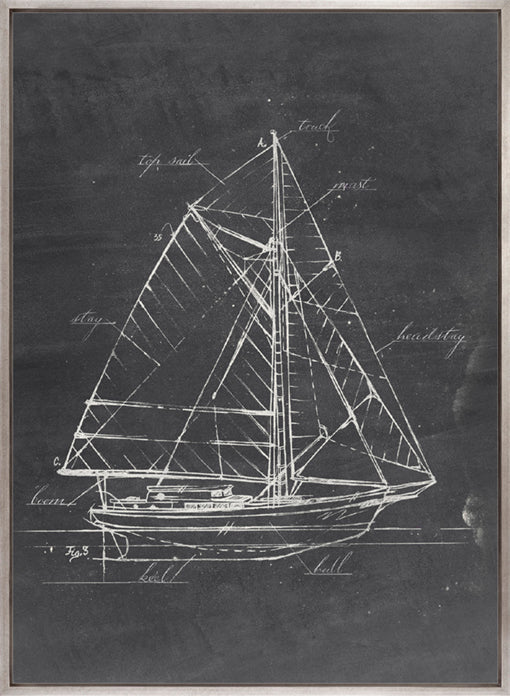 touck
A.
top sail
mast
35
B.
stay
headstay
C.
boom
Fig. 3
keel
hull